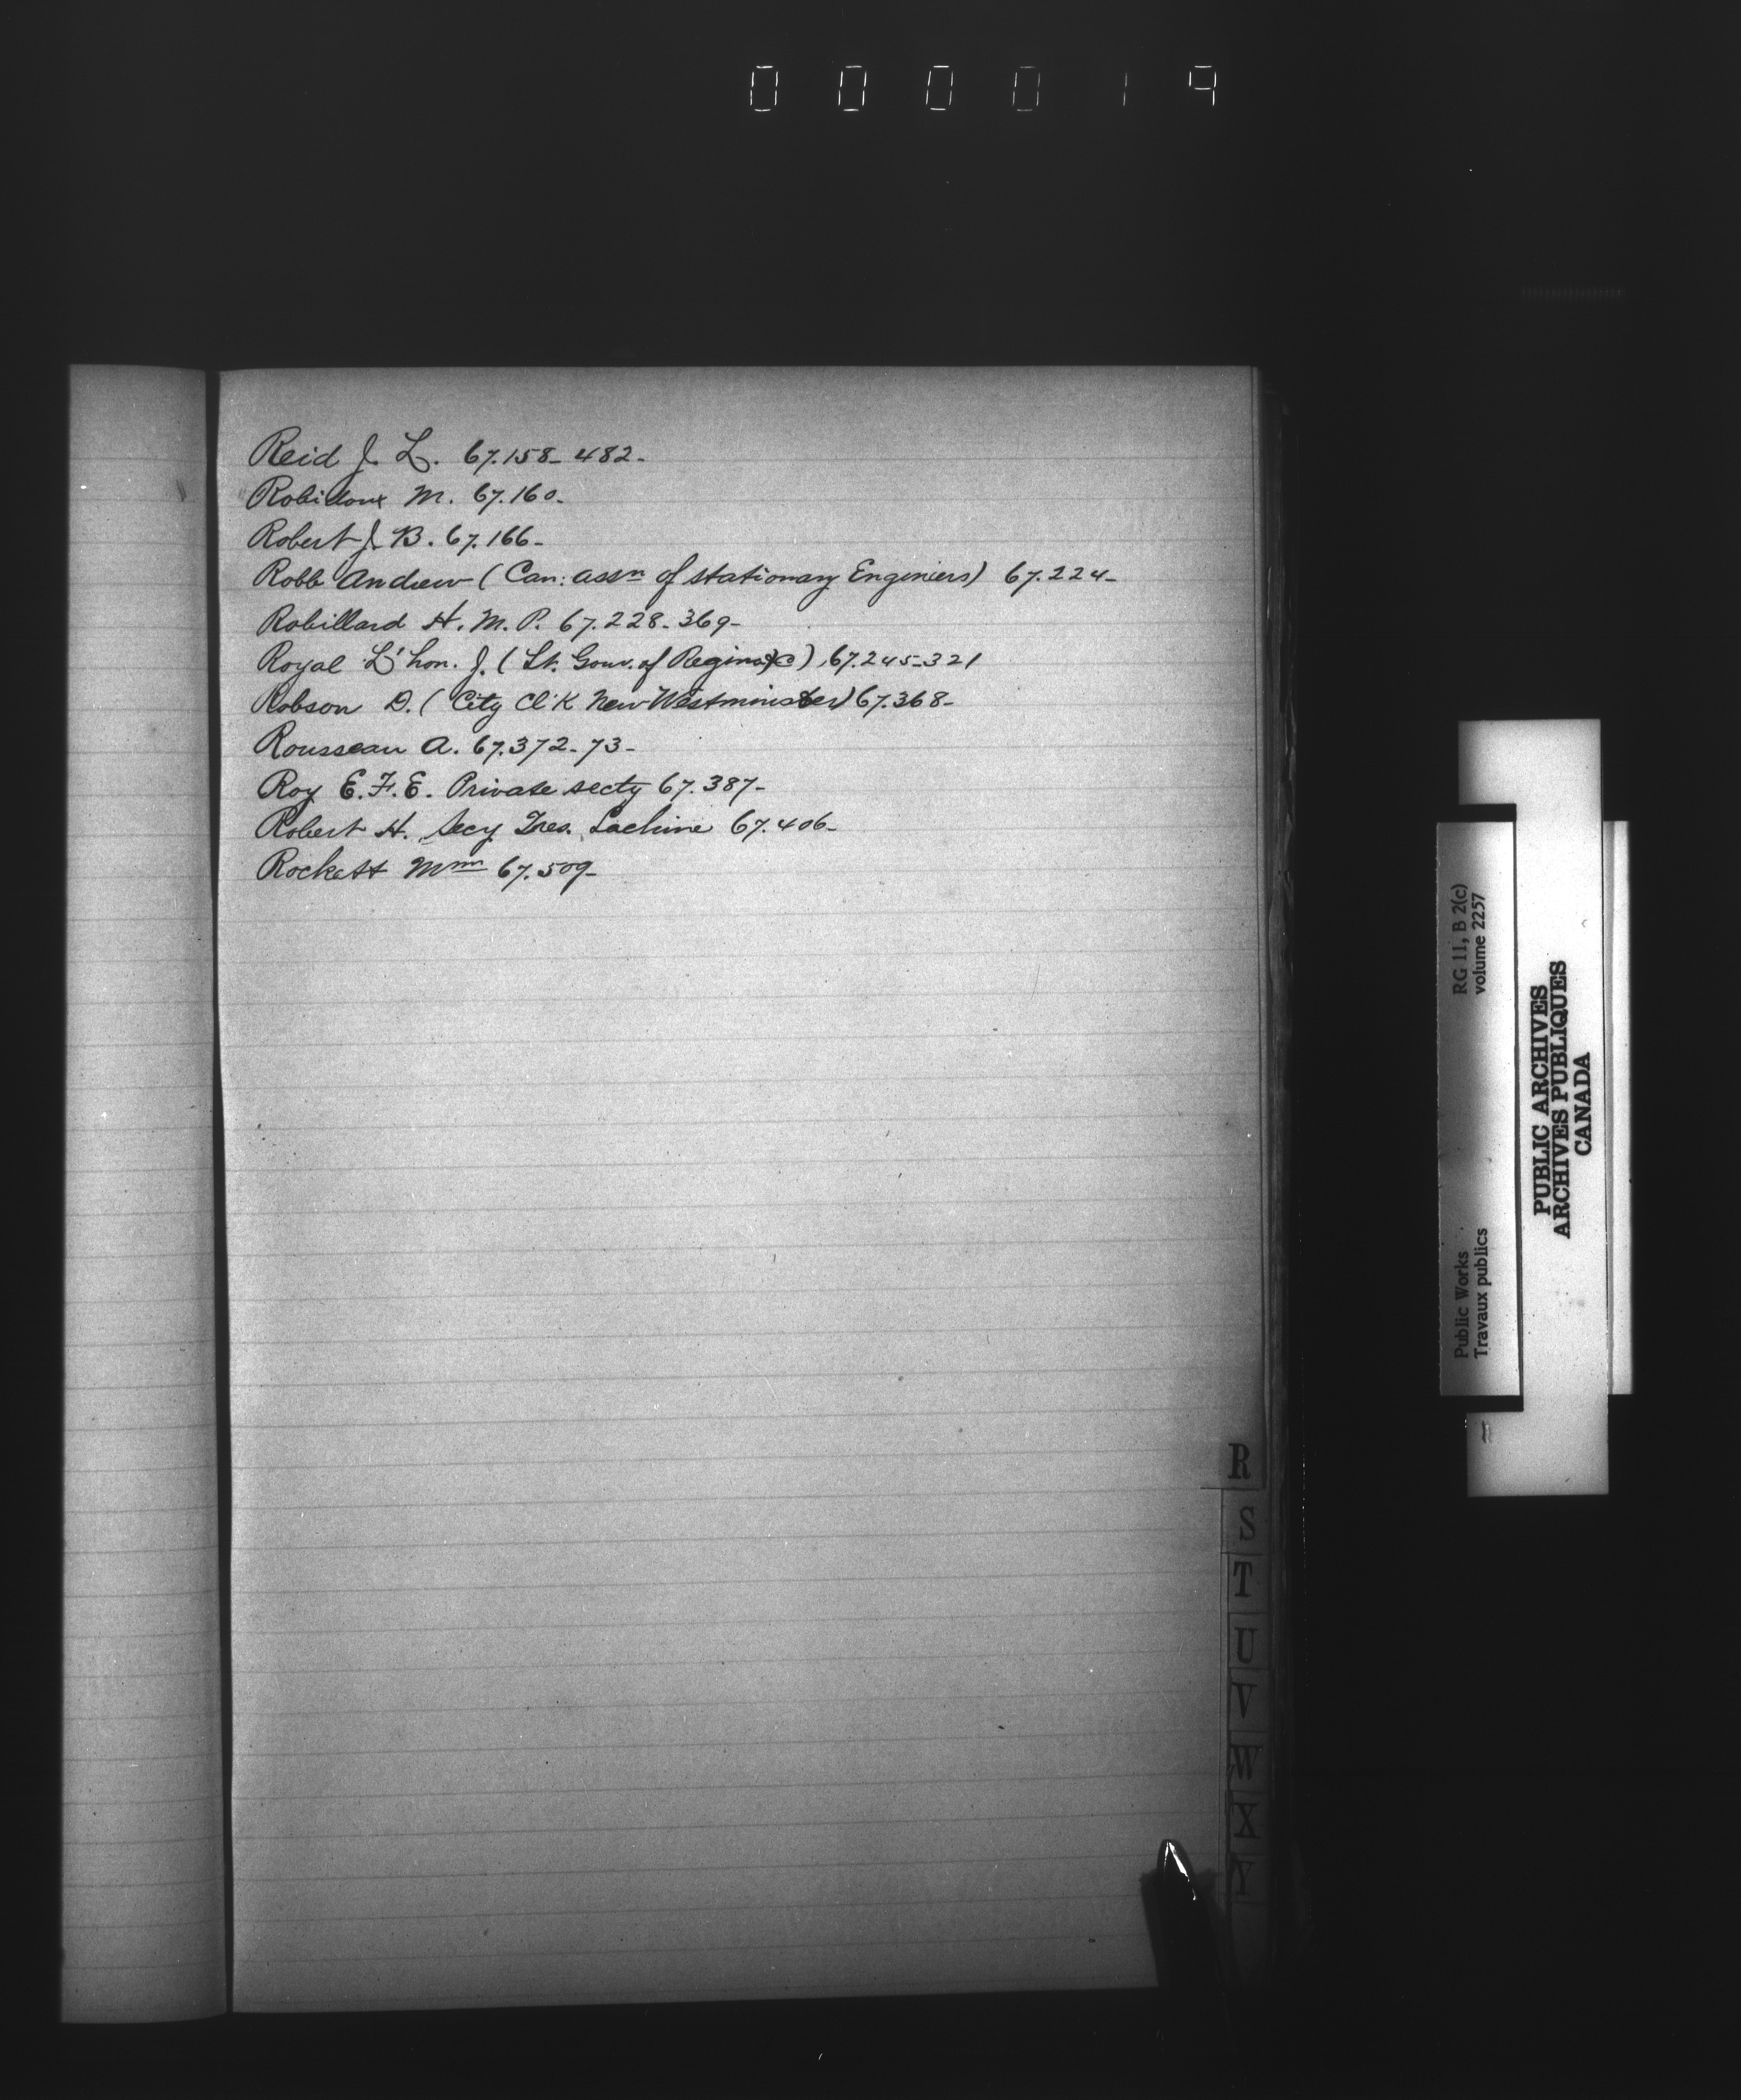 000019
Reid J. L. 67.158-482-
Robidoux M. 67.160-
Robert J. B. 67.166-
Robb Andrew (Can: assn of stationary Engeniers) 67.224-
Robillard H. M. P. 67.228-369-
Royal L'hon. J. (Lt. Gouv. of Regina) 67.245-321
Robson D. (City Cl'k New Westminster) 67.368-
Rousseau A. 67.372-73-
Roy E. F. E. Private secty 67.387-
Robert H. Secy Tres. Lachine 67.406-
Rockett 67.509-
R
S
T
U
V
W
X
Y
Public Works
Travaux publics
RG 11, B 2(c)
volume 2257
PUBLIC ARCHIVES
ARCHIVES PUBLIQUES
CANADA